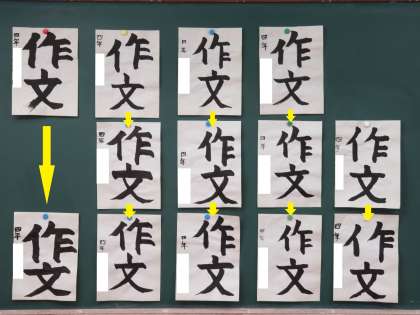 作文
四年
作文
四年
作文
四年
作文
四年
作文
四年
作文
四年
作文
四年
作文
四年
作文
四年
作文
四年
作文
四年
作文
四年
作文
四年